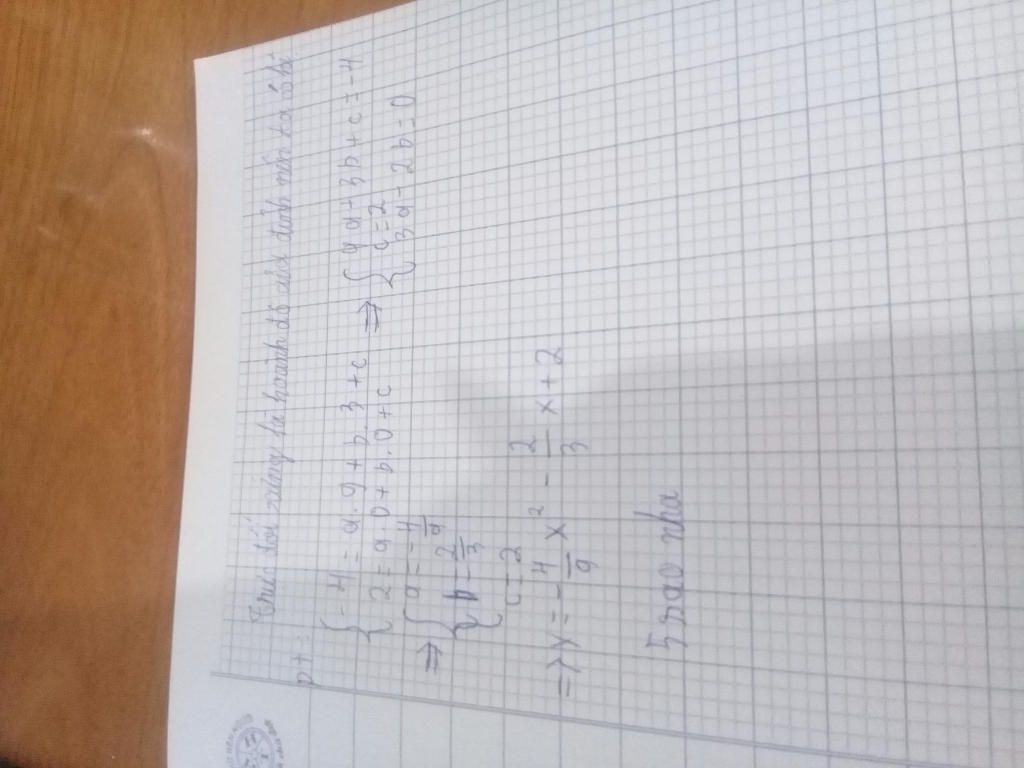 Trục đối xứng là hoành độ của đỉnh nên ta có hệ
pt:
{ -4 = a.9 + b.3 + c ⇒ { 9a + 3b + c = -4
{ 2 = a.0 + b.0 + c { c = 2
{ 3a - 2b = 0
⇒ { a = -4/9
{ b = -2/3
{ c = 2
=> y = -4/9 x² - 2/3 x + 2
5 sao nha